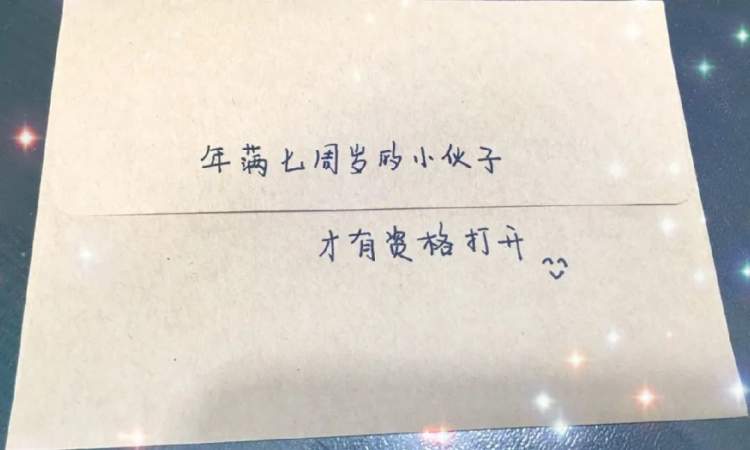 年满七周岁的小伙子
才有资格打开